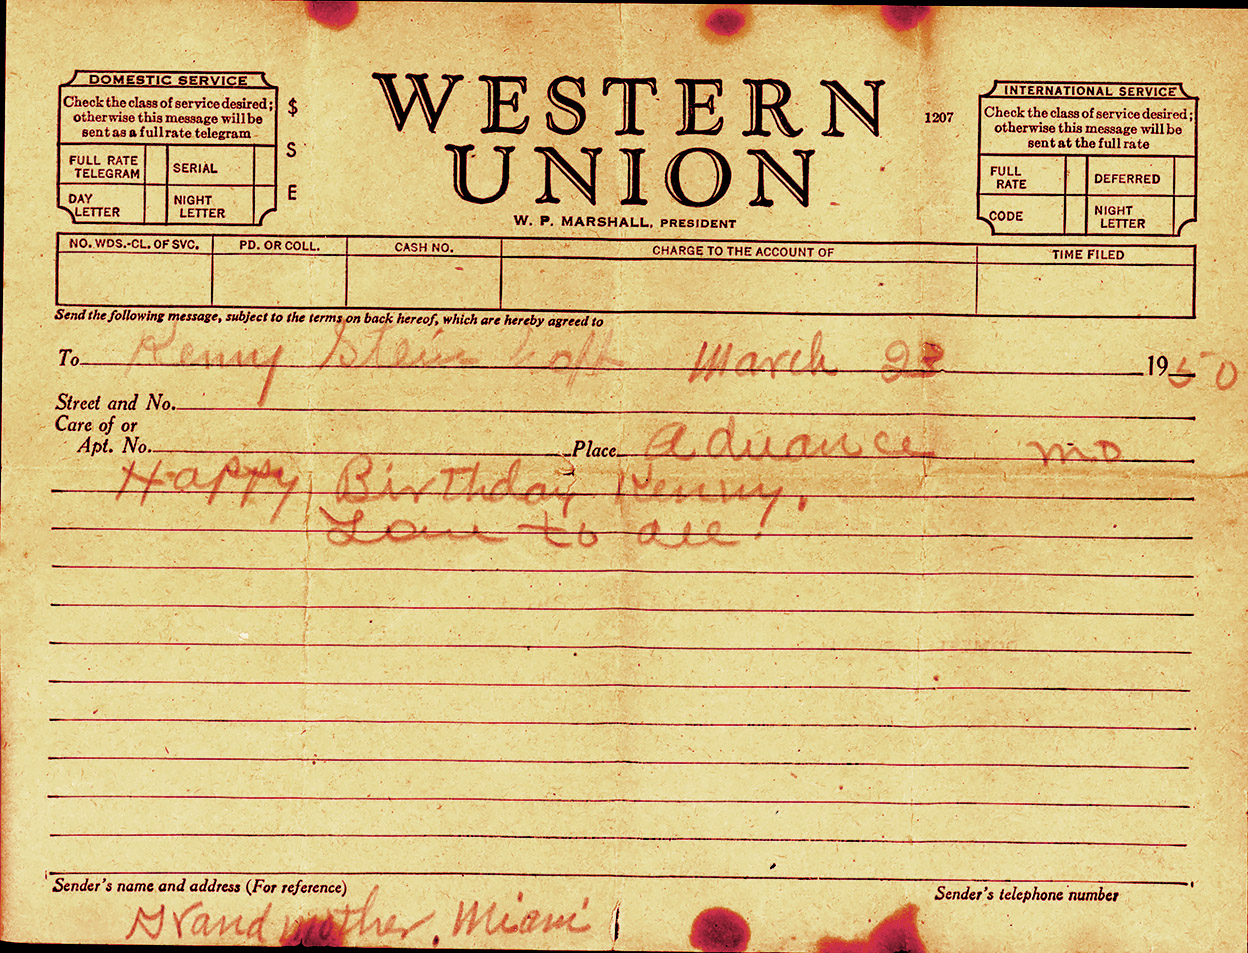 DOMESTIC SERVICE
Check the class of service desired;
otherwise this message will be
sent as a full rate telegram
FULL RATE TELEGRAM
SERIAL
DAY LETTER
NIGHT LETTER
$
S
E
WESTERN
UNION
1207
W. P. MARSHALL, PRESIDENT
INTERNATIONAL SERVICE
Check the class of service desired;
otherwise this message will be
sent at the full rate
FULL RATE
DEFERRED
CODE
NIGHT LETTER
NO. WDS.-CL. OF SVC. PD. OR COLL. CASH NO. CHARGE TO THE ACCOUNT OF TIME FILED
Send the following message, subject to the terms on back hereof, which are hereby agreed to
To Kenny March 23 1950
Street and No.
Care of or
Apt. No. Place Advance Mo
Happy Birthday Kenny.
Love to all.
Sender's name and address (For reference) Sender's telephone number
Grandmother, Miami